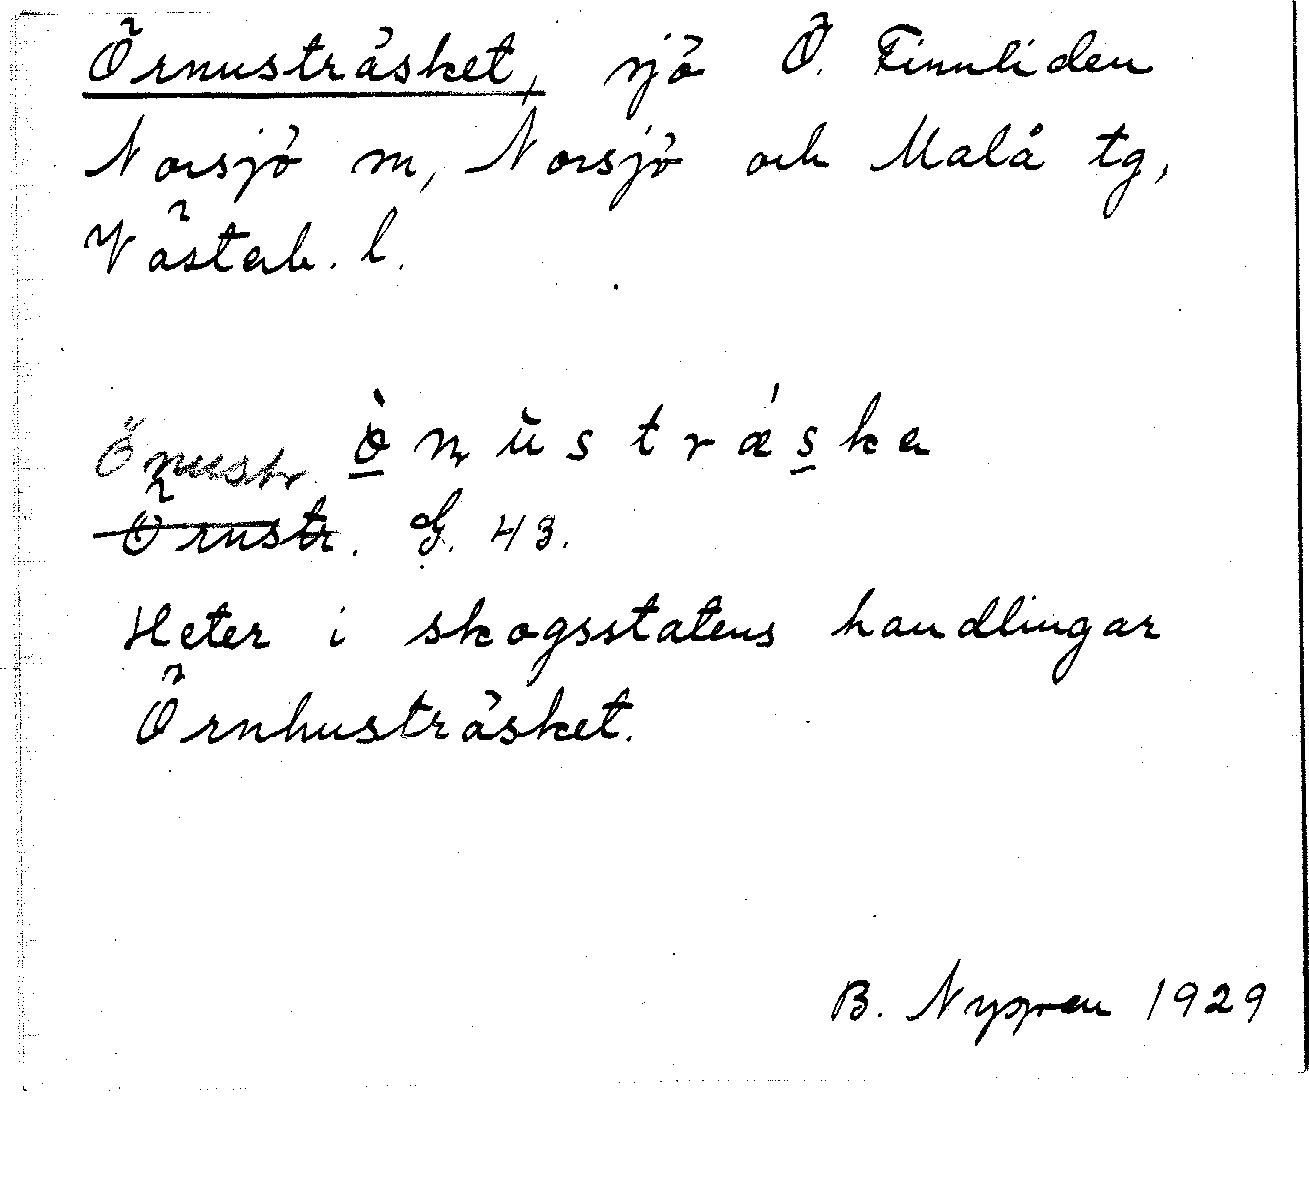 Örnusträsket, sjö Ö. Finnliden
Norsjö m, Norsjö och Malå tg,
Västerb. l.
Önustr. ònŭstrǽska
Örnustr. G. 43.
Heter i skogsstatens handlingar
Örnhusträsket.
B. Nygren 1929